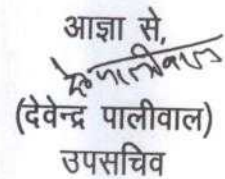 आज्ञा से,
(देवेन्द्र पालीवाल)
उपसचिव